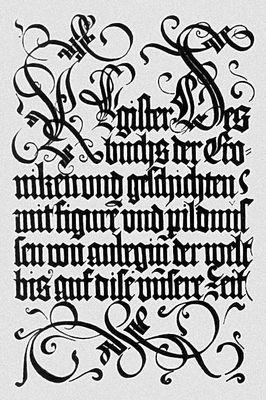 Register Des
buchs der Cro=
niken vnd geschichten
mit figurē vnd pildnus
sen von anbegiñ der welt
bis auf dise vñsere Zeit